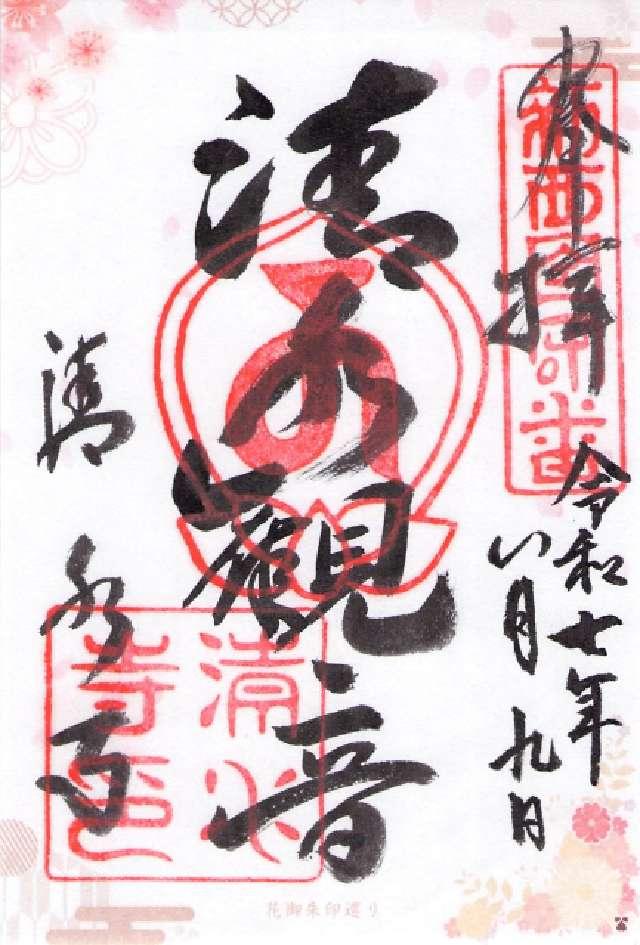 奉拝
令和七年
八月九日
清水觀音
清水寺
清水
寺印
花御朱印巡り